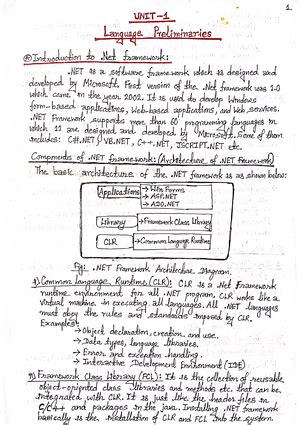 1.
UNIT-1
Language Preliminaries
Introduction to .Net framework:
.NET is a software framework which is designed and
developed by Microsoft. First version of the .Net framework was 1.0
which came in the year 2002. It is used to develop Windows
form-based applications, Web-based applications, and Web services.
.NET Framework supports more than 60 programming languages in
which 11 are designed and developed by Microsoft. Some of them
includes: C#.NET, VB.NET, C++.NET, JSCRIPT.NET etc.
Components of .NET Framework: (Architecture of .NET Framework)
The basic architecture of the .NET framework is as shown below:
Applications → Win Forms
→ ASP.NET
→ ADO.NET
Library → Framework Class Library
CLR → Common Language Runtime
Fig: .NET Framework Architecture Diagram.
i) Common Language Runtime (CLR): CLR is a .Net Framework
runtime environment for all .NET program. CLR works like a
virtual machine in executing all languages. All .NET languages
must obey the rules and standards imposed by CLR.
Examples:
→ Object declaration, creation and use.
→ Data types, language libraries.
→ Error and exception handling.
→ Interactive Development Environment (IDE)
ii) Framework Class Library (FCL): It is the collection of reusable,
object-oriented class libraries and methods etc. that can be
integrated with CLR. It is just like the header files in
C/C++ and packages in the java. Installing .NET framework
basically is the installation of CLR and FCL into the system